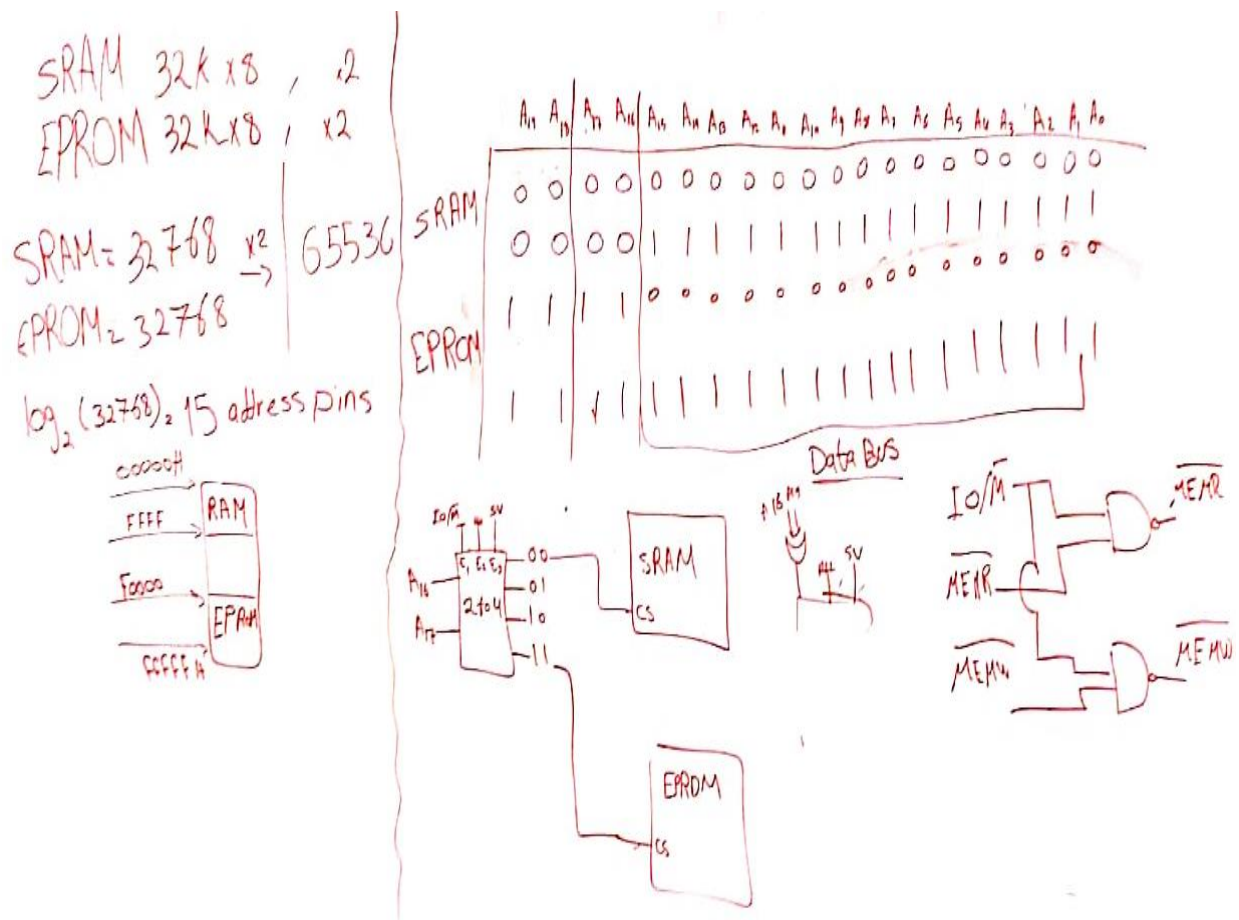 SRAM 32K x8 , x2
EPROM 32K x8 , x2
SRAM = 32768 x2 → 65536
EPROM = 32768
log₂ (32768) = 15 address pins
00000H
FFFF
F0000
FFFFF H
RAM
EPROM
A₁₉ A₁₈ A₁₇ A₁₆ A₁₅ A₁₄ A₁₃ A₁₂ A₁₁ A₁₀ A₉ A₈ A₇ A₆ A₅ A₄ A₃ A₂ A₁ A₀
SRAM
0 0 0 0 0 0 0 0 0 0 0 0 0 0 0 0 0 0 0 0
0 0 0 0 1 1 1 1 1 1 1 1 1 1 1 1 1 1 1 1
EPROM
1 1 1 1 0 0 0 0 0 0 0 0 0 0 0 0 0 0 0 0
1 1 1 1 1 1 1 1 1 1 1 1 1 1 1 1 1 1 1 1
Data Bus
IO/M̅ 5V
E₁ E₂ E₃
A₁₆
A₁₇
2to4
00
01
10
11
SRAM
CS
EPROM
CS
A18 A19
5V
IO/M̅
M̅E̅M̅R̅
M̅E̅M̅R̅
M̅E̅M̅W̅
M̅E̅M̅W̅